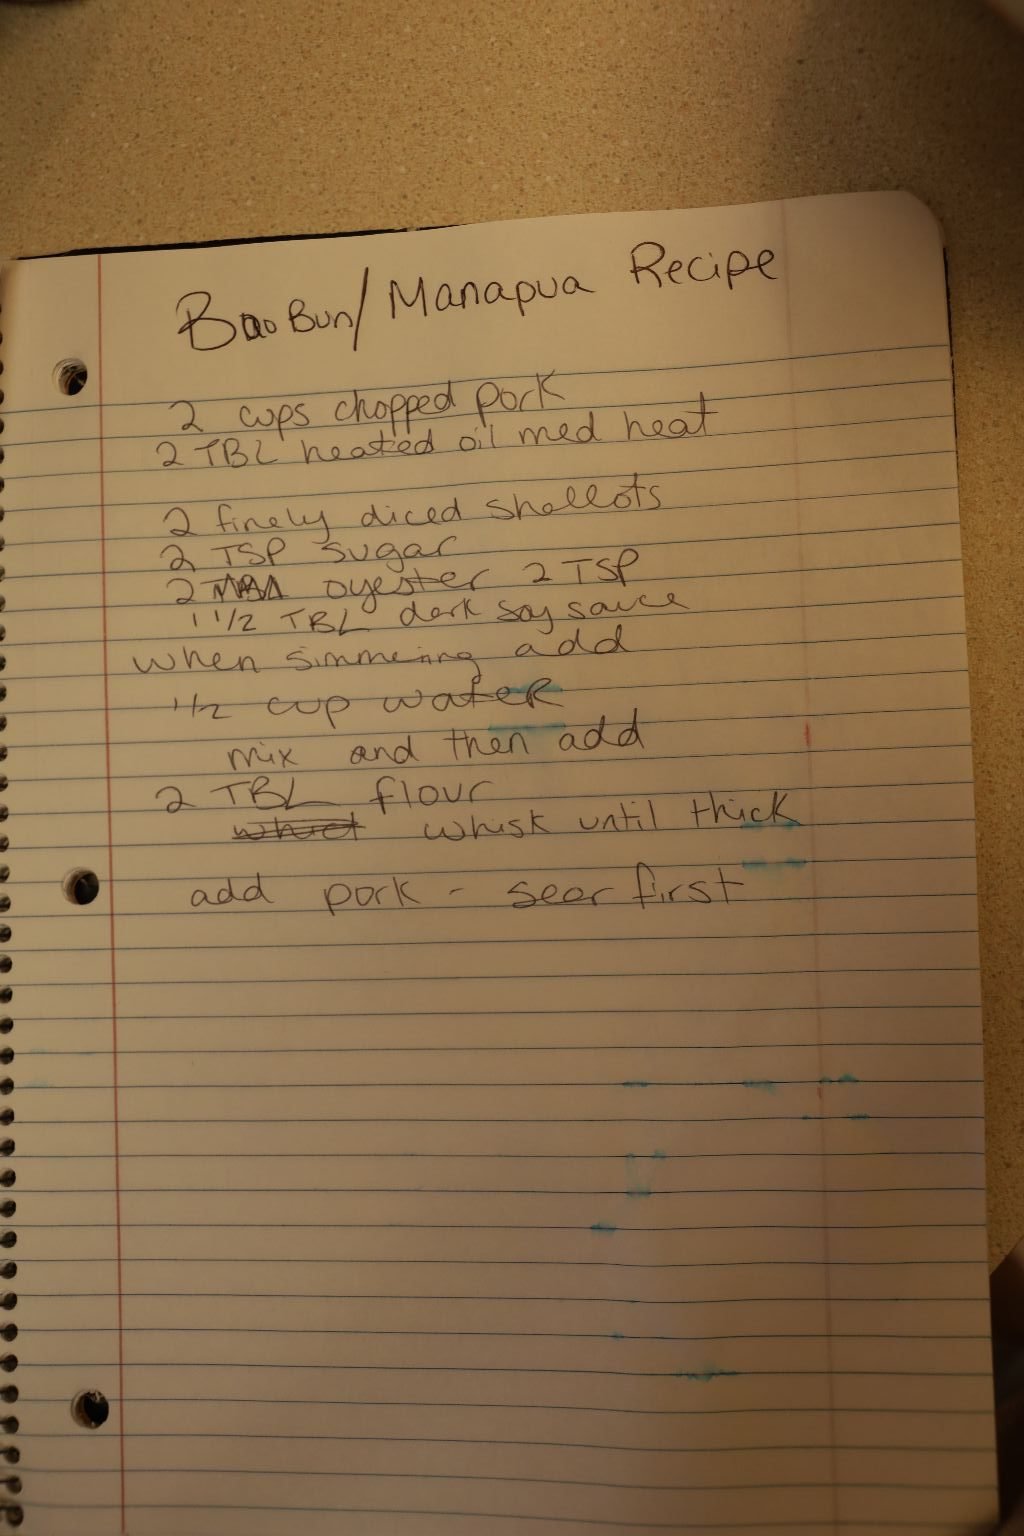 Bao Bun/ Manapua Recipe
2 cups chopped pork
2 TBL heated oil med heat
2 finely diced shellots
2 TSP sugar
2 oyester 2 TSP
1 1/2 TBL dark soy sauce
when simmering add
1/2 cup water
mix and then add
2 TBL flour
whisk until thick
add pork - sear first